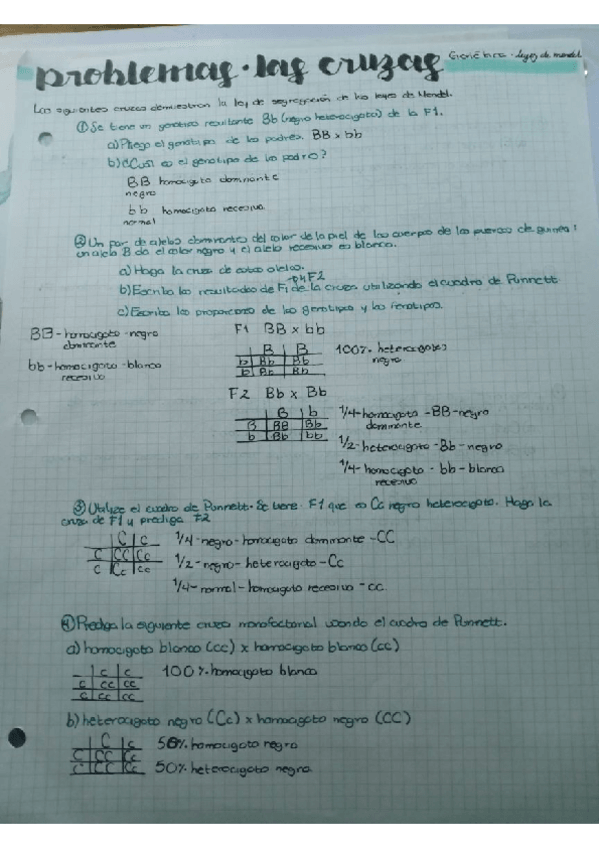 Problemas · las cruzas Genética · Leyes de mendel
Las siguientes cruces demuestran la ley de segregación de las leyes de Mendel.
① Se tiene un genotipo resultante Bb (negro heterocigoto) de la F1.
a) Haga el genotipo de los padres. BB x bb
b) ¿Cuál es el genotipo de los padre?
BB homocigoto dominante
negro
bb homocigoto recesivo
normal
② Un par de alelos dominantes del color de la piel de los cuerpo de los puercos de guinea
un alelo B da el color negro y el alelo recesivo es blanco.
a) Haga la cruza de estos alelos.
y F2
b) Escriba los resultados de F1 de la cruza utilizando el cuadro de Punnett
c) Escriba las proporciones de los genotipos y los fenotipos.
BB-homocigoto-negro
dominante
bb-homocigoto-blanco
recesivo
F1 BB x bb
B B
b Bb Bb
b Bb Bb
100% heterocigotos
negro
F2 Bb x Bb
B b
B BB Bb
b Bb bb
1/4-homocigoto-BB-negro
dominante
1/2-heterocigoto-Bb-negro
1/4-homocigoto-bb-blanco
recesivo
③ Utilize el cuadro de Punnett. Se tiene F1 que es Cc negro heterocigoto. Haga la
cruza de F1 y prediga F2
C c
C CC Cc
c Cc cc
1/4-negro-homocigoto dominante-CC
1/2-negro-heterocigoto-Cc
1/4-normal-homocigoto recesivo-cc
④ Prediga la siguiente cruza monofactorial usando el cuadro de Punnett.
a) homocigoto blanco (cc) x homocigoto blanco (cc)
c c
c cc cc
c cc cc
100% homocigoto blanco
b) heterocigoto negro (Cc) x homocigoto negro (CC)
C c
C CC Cc
C CC Cc
50% homocigoto negro
50% heterocigoto negro